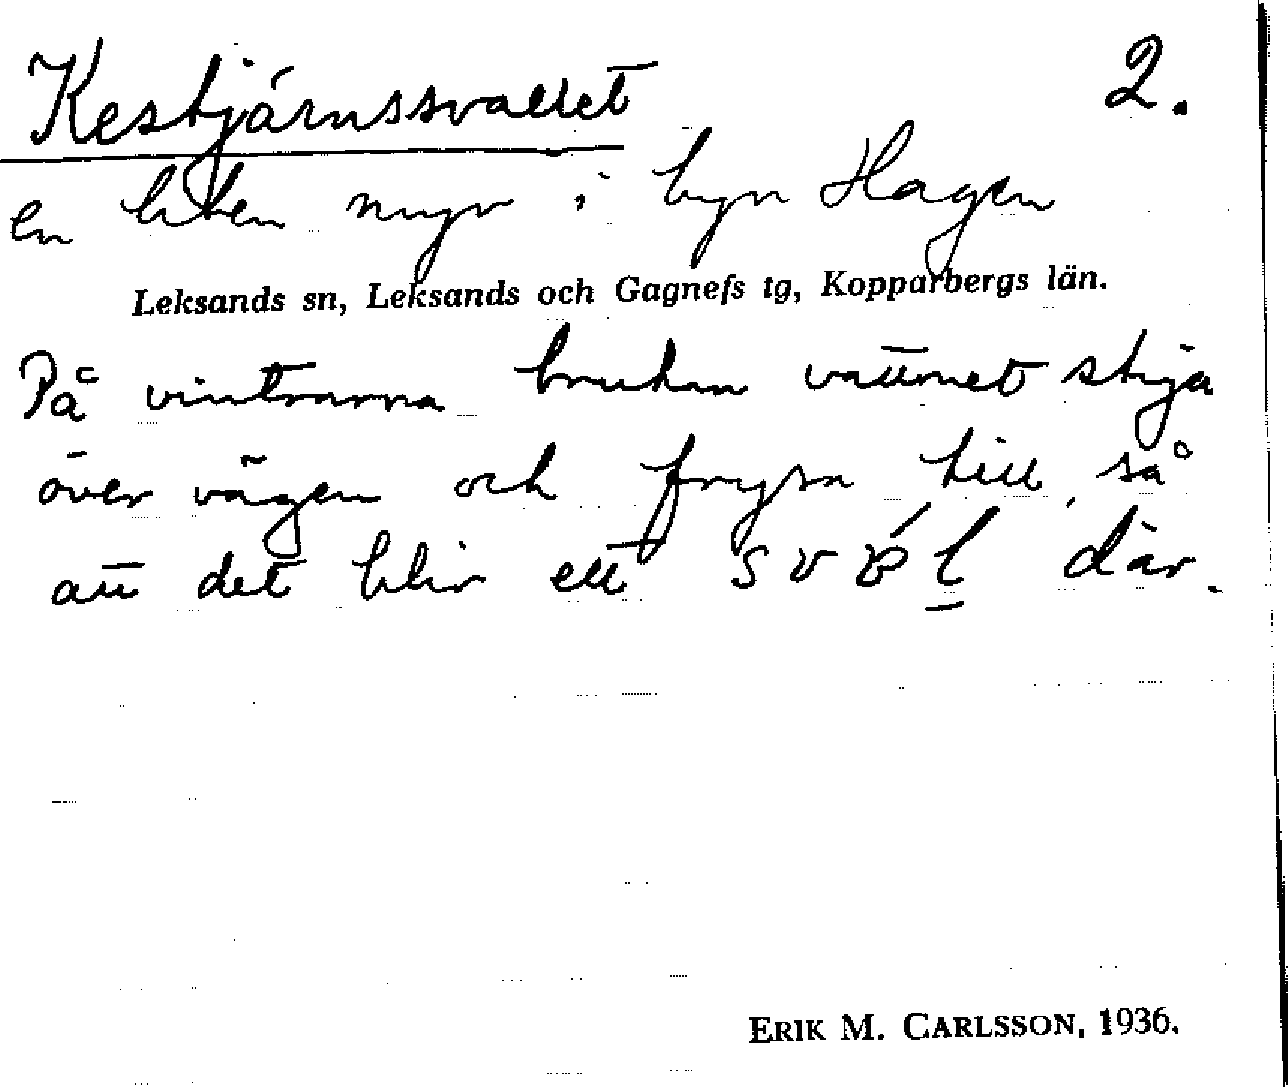 Kestjärnssvallet 2.
en liten myr i byn Hagen
Leksands sn, Leksands och Gagnefs tg, Kopparbergs län.
På vintrarna brukar vattnet stiga
över vägen och frysa till, så
att det blir ett där.
ERIK M. CARLSSON, 1936.